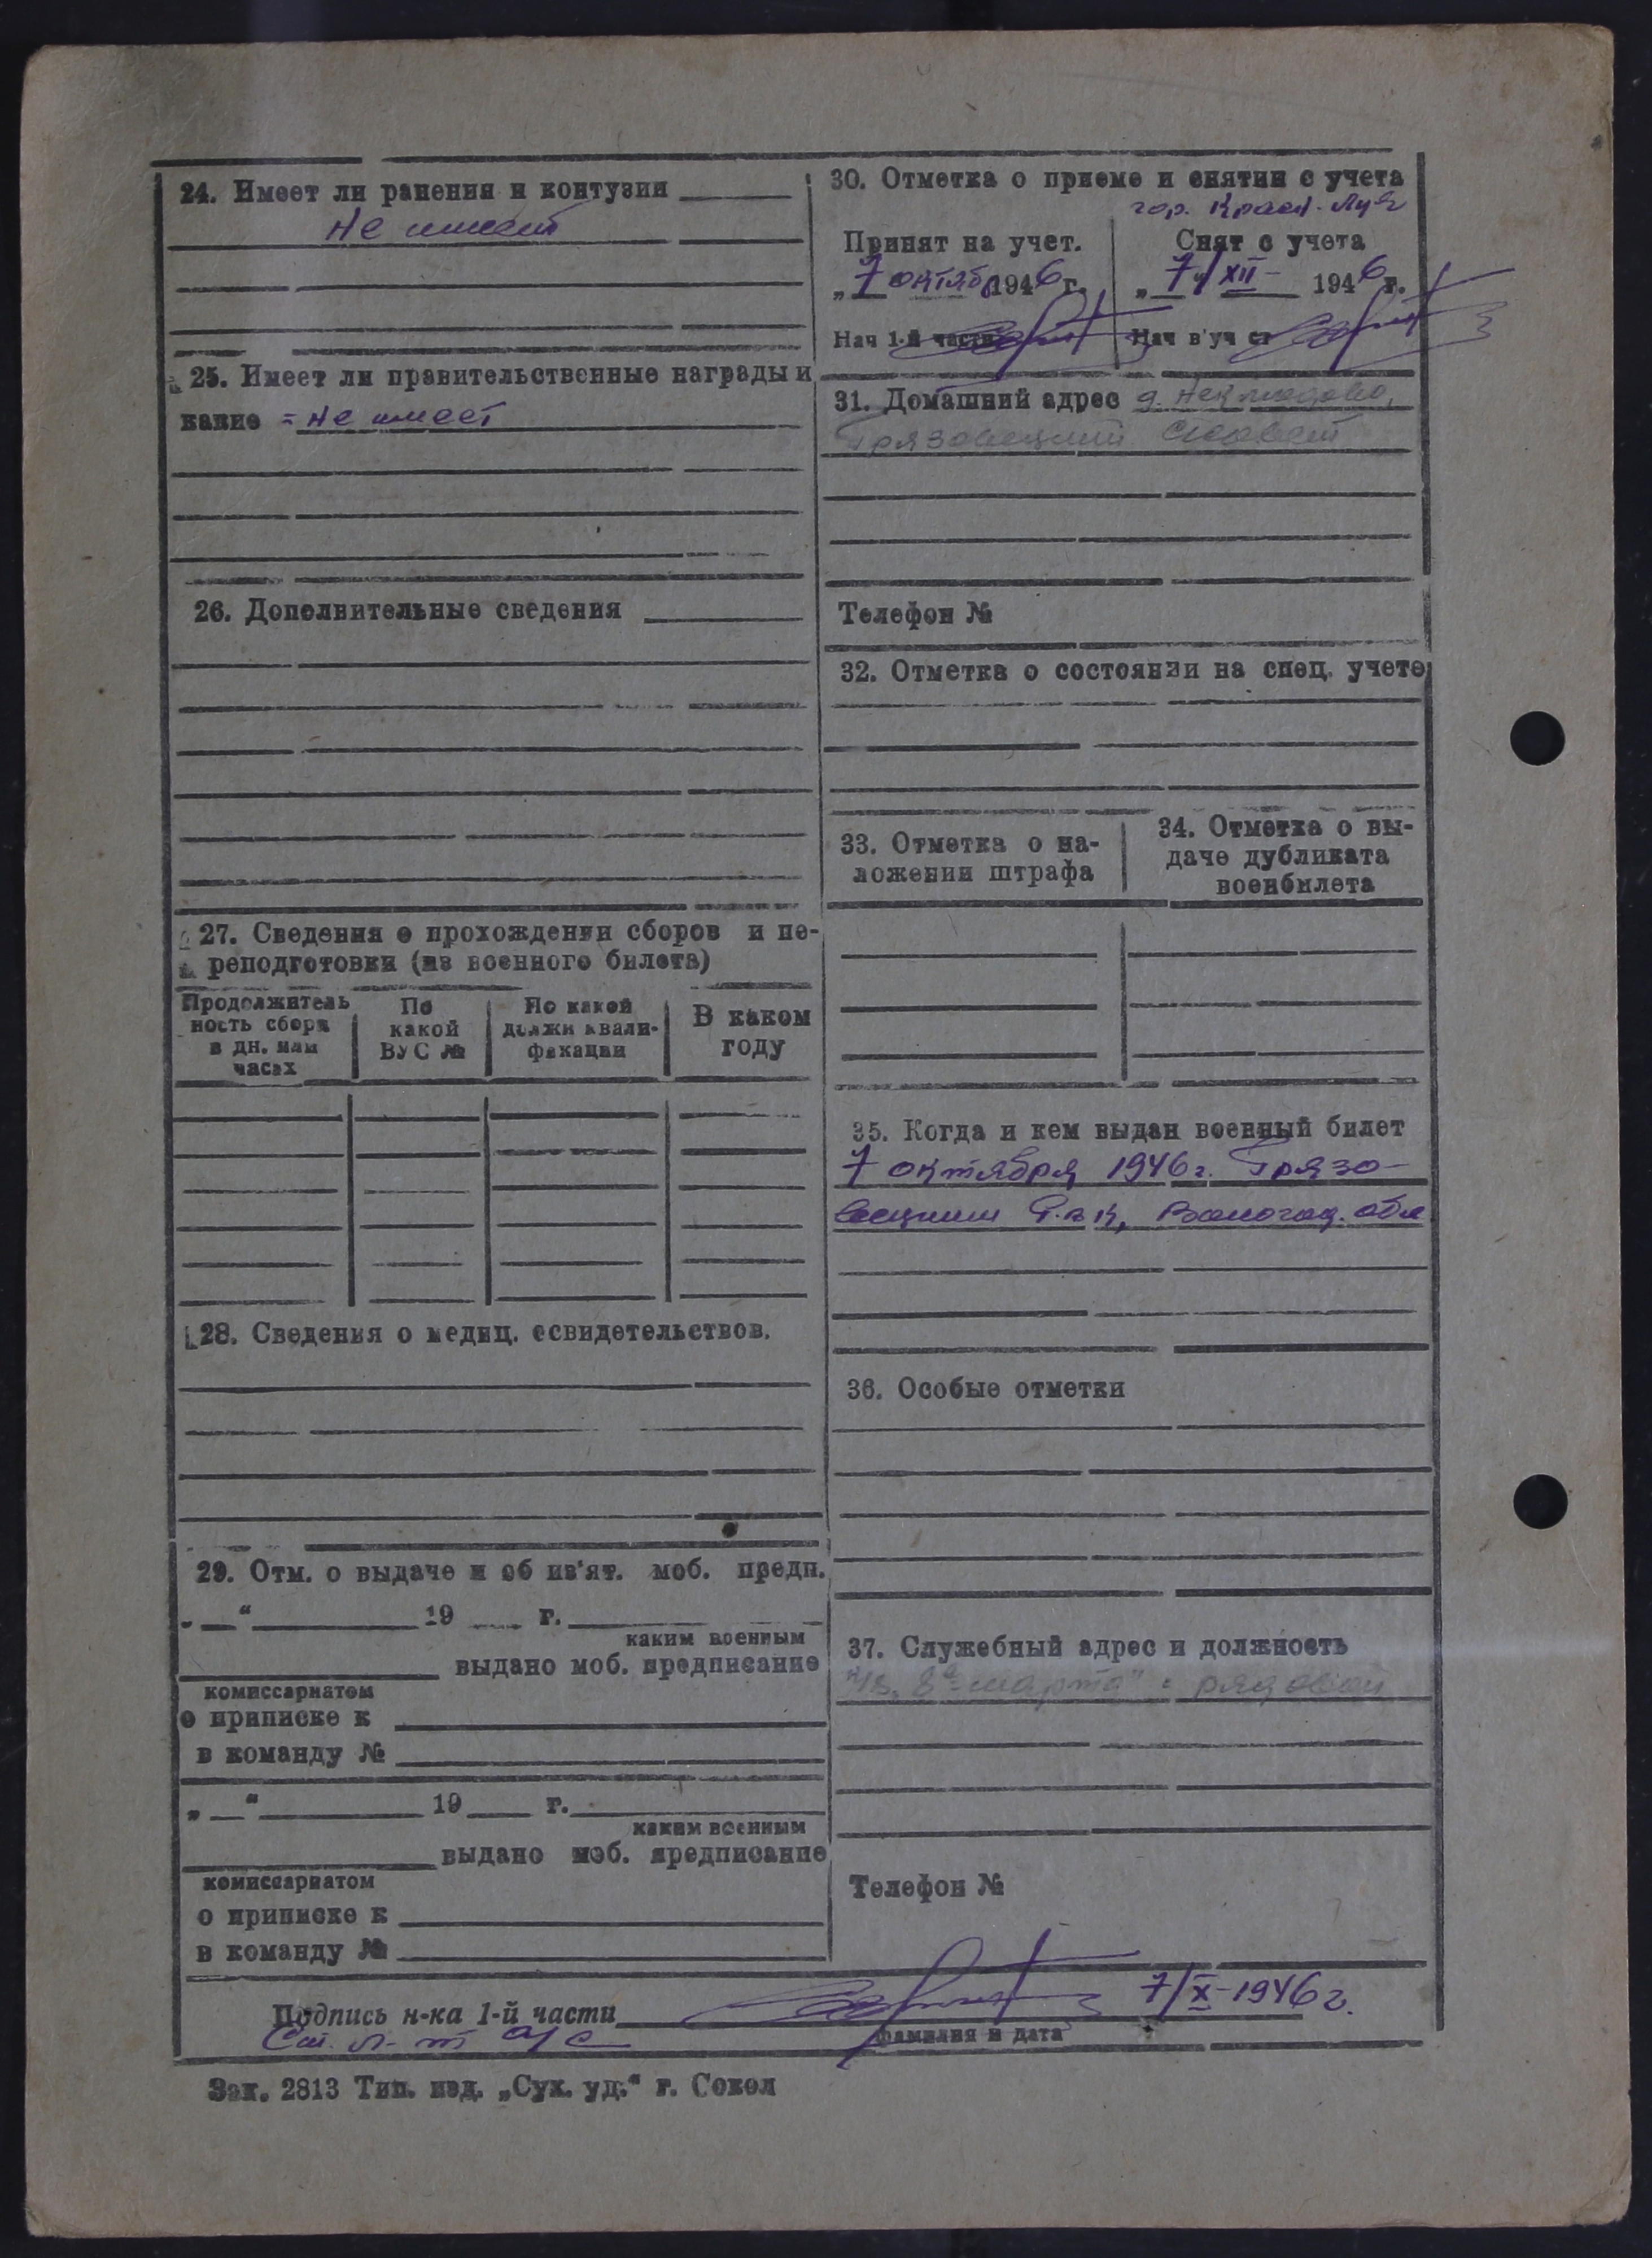 24. Имеет ли ранения и контузии
Не имеет
25. Имеет ли правительственные награды и
какие = не имеет
26. Дополнительные сведения
27. Сведения о прохождении сборов и пе-
реподготовки (из военного билета)
Продолжитель
ность сбора
в дн. или
часах
По
какой
ВУС №
По какой
должн квали-
фикации
В каком
году
28. Сведения о медиц. освидетельствов.
29. Отм. о выдаче и об из'ят. моб. предп.
„ “ 19 г.
каким военным
выдано моб. предписание
комиссариатом
о приписке к
в команду №
„ “ 19 г.
каким военным
выдано моб. предписание
комиссариатом
о приписке к
в команду №
30. Отметка о приеме и снятии с учета
гор. Красн. Луч
Принят на учет.
„7 октяб 1946 г.
Нач 1-й части
Снят с учета
„7/XII- 1946 г.
Нач в'уч ст
31. Домашний адрес д. Неклюдово,
Грязовецкий с/совет
Телефон №
32. Отметка о состоянии на спец. учете
33. Отметка о на-
ложении штрафа
34. Отметка о вы-
даче дубликата
военбилета
35. Когда и кем выдан военный билет
7 октября 1946 г. Грязо-
вецким Р.в.к, Вологод. обл
36. Особые отметки
37. Служебный адрес и должность
8е марта" = рядовой
Телефон №
Подпись н-ка 1-й части 7/X-1946 г.
Ст. л-т а/с
фамилия и дата
Зак. 2813 Тип. изд. „Сух. уд.“ г. Сокол